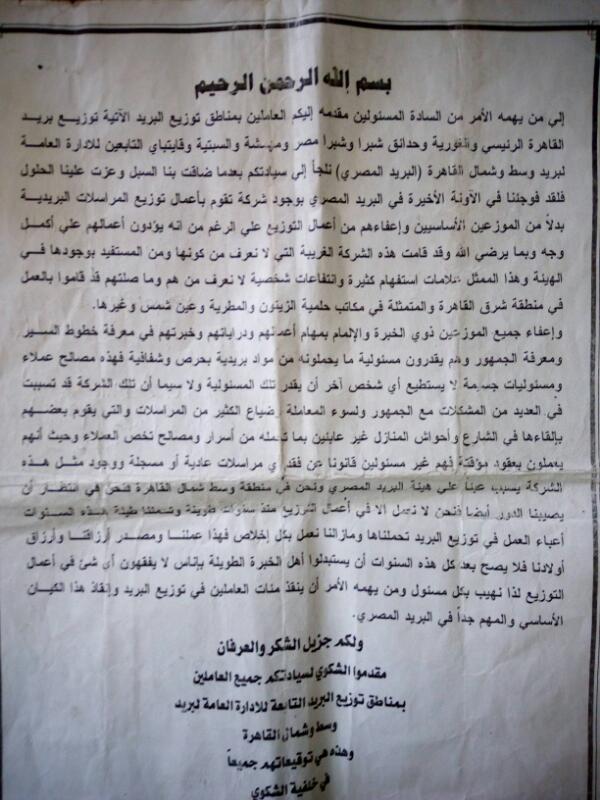 بسم الله الرحمن الرحيم
إلي من يهمه الأمر من السادة المسئولين مقدمه إليكم العاملين بمناطق توزيع البريد الآتية توزيع بريد
القاهرة الرئيسي والغورية وحدائق شبرا وشبرا مصر ومهمشة والسبتية وقايتباي التابعين للادارة العامة
لبريد وسط وشمال القاهرة (البريد المصري) نلجأ إلي سيادتكم بعدما ضاقت بنا السبل وعزت علينا الحلول
فلقد فوجئنا في الآونة الأخيرة في البريد المصري بوجود شركة تقوم بأعمال توزيع المراسلات البريدية
بدلاً من الموزعين الأساسيين وإعفاءهم من أعمال التوزيع علي الرغم من انه يؤدون أعمالهم علي أكمل
وجه وبما يرضي الله وقد قامت هذه الشركة الغريبة التي لا نعرف من كونها ومن المستفيد بوجودها في
الهيئة وهذا الممثل علامات استفهام كثيرة وانتفاعات شخصية لا نعرف من هم وما صلتهم قد قاموا بالعمل
في منطقة شرق القاهرة والمتمثلة في مكاتب حلمية الزيتون والمطرية وعين شمس وغيرها.
وإعفاء جميع الموزعين ذوي الخبرة والإلمام بمهام أعمالهم ودراياتهم وخبرتهم في معرفة خطوط السير
ومعرفة الجمهور وهم يقدرون مسئولية ما يحملونه من مواد بريدية بحرص وشفافية فهذه مصالح عملاء
ومسئوليات جسمة لا يستطيع أي شخص آخر أن يقدر تلك المسئولية ولا سيما أن تلك الشركة قد تسببت
في العديد من المشكلات مع الجمهور ولسوء المعاملة وضياع الكثير من المراسلات والتي يقوم بعضهم
بإلقاءها في الشارع وأحواش المنازل غير عابئين بما تحمله من أسرار ومصالح تخص العملاء وحيث أنهم
يعملون بعقود مؤقتة فهم غير مسئولين قانونا عن فقد أي مراسلات عادية أو مسجلة ووجود مثل هذه
الشركة يسبب عبئا علي هيئة البريد المصري ونحن في منطقة وسط شمال القاهرة فنحن في انتظار أن
يصيبنا الدور أيضا فنحن لا نعمل الا في أعمال التوزيع منذ سنوات طويلة وتحملنا طيلة هذه السنوات
أعباء العمل في توزيع البريد تحملناها ومازالنا نعمل بكل إخلاص فهذا عملنا ومصدر أرزاقنا وأرزاق
أولادنا فلا يصح بعد كل هذه السنوات أن يستبدلوا أهل الخبرة الطويلة بإناس لا يفقهون أي شئ في أعمال
التوزيع لذا نهيب بكل مسئول ومن يهمه الأمر أن ينقذ مئات العاملين في توزيع البريد وإنقاذ هذا الكيان
الأساسي والمهم جداً في البريد المصري.
ولكم جزيل الشكر والعرفان
مقدموا الشكوي لسيادتكم جميع العاملين
بمناطق توزيع البريد التابعة للادارة العامة لبريد
وسط وشمال القاهرة
وهذه هي توقيعاتهم جميعاً
في خلفية الشكوي